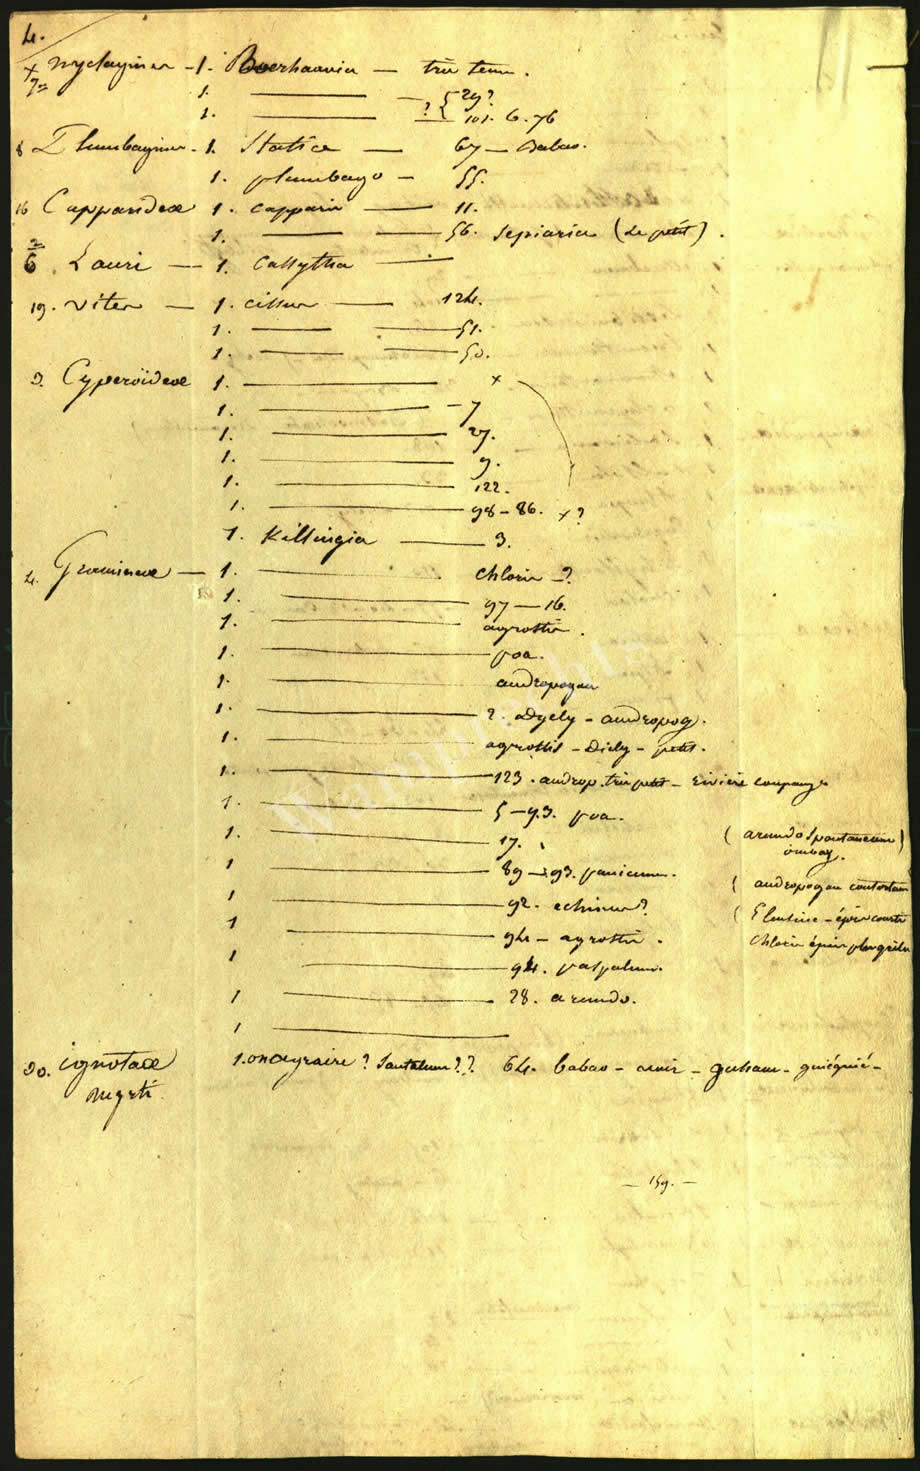 4.
x nyctaginea - 1. Boerhaavia — très tenu.
7= 1. ——— — { 29?
1. ——— ? { 101. 6. 76
8 Plumbaginea - 1. Statice — 67 — Babao.
1. plumbago — 55.
16 Capparideae 1. capparis — 11.
1. ——— — 56. sepiaria (Le petit).
2
6. Lauri — 1. Cassytha ———
19. vites — 1. cissus — 124.
1. ——— ——— 51.
1. ——— ——— 50.
3. Cyperoïdeae 1. ——— x
1. ——— - 7
1. ——— 27.
1. ——— 9.
1. ——— 122.
1. ——— 98 - 86. x?
1. Killingia ——— 3.
4. Gramineae — 1. ——— chloris - ?
1. ——— 97 — 16.
1. ——— agrostis.
1. ——— poa.
1. ——— andropogon
1. ——— 2. - andropog.
1. ——— agrostis - Diely - petit.
1. ——— 123. androp. très petit - rivière coupang
1. ——— 5 - 93. poa.
1. ——— 17. (arundo Spontaneum)
ombay.
1 ——— 89 - 93. panicum. (andropogon contortum
1 ——— 92. echinus? (Eleusine - épis courts
1 ——— 94 - agrostis. chloris épis plus grêles
1 ——— 94. paspalum.
1 ——— 28. arundo.
1 ———
20. ignotae 1. onagraire? Santalum?? 64. babao - - - guiéguié -
myrti.
- 159. -